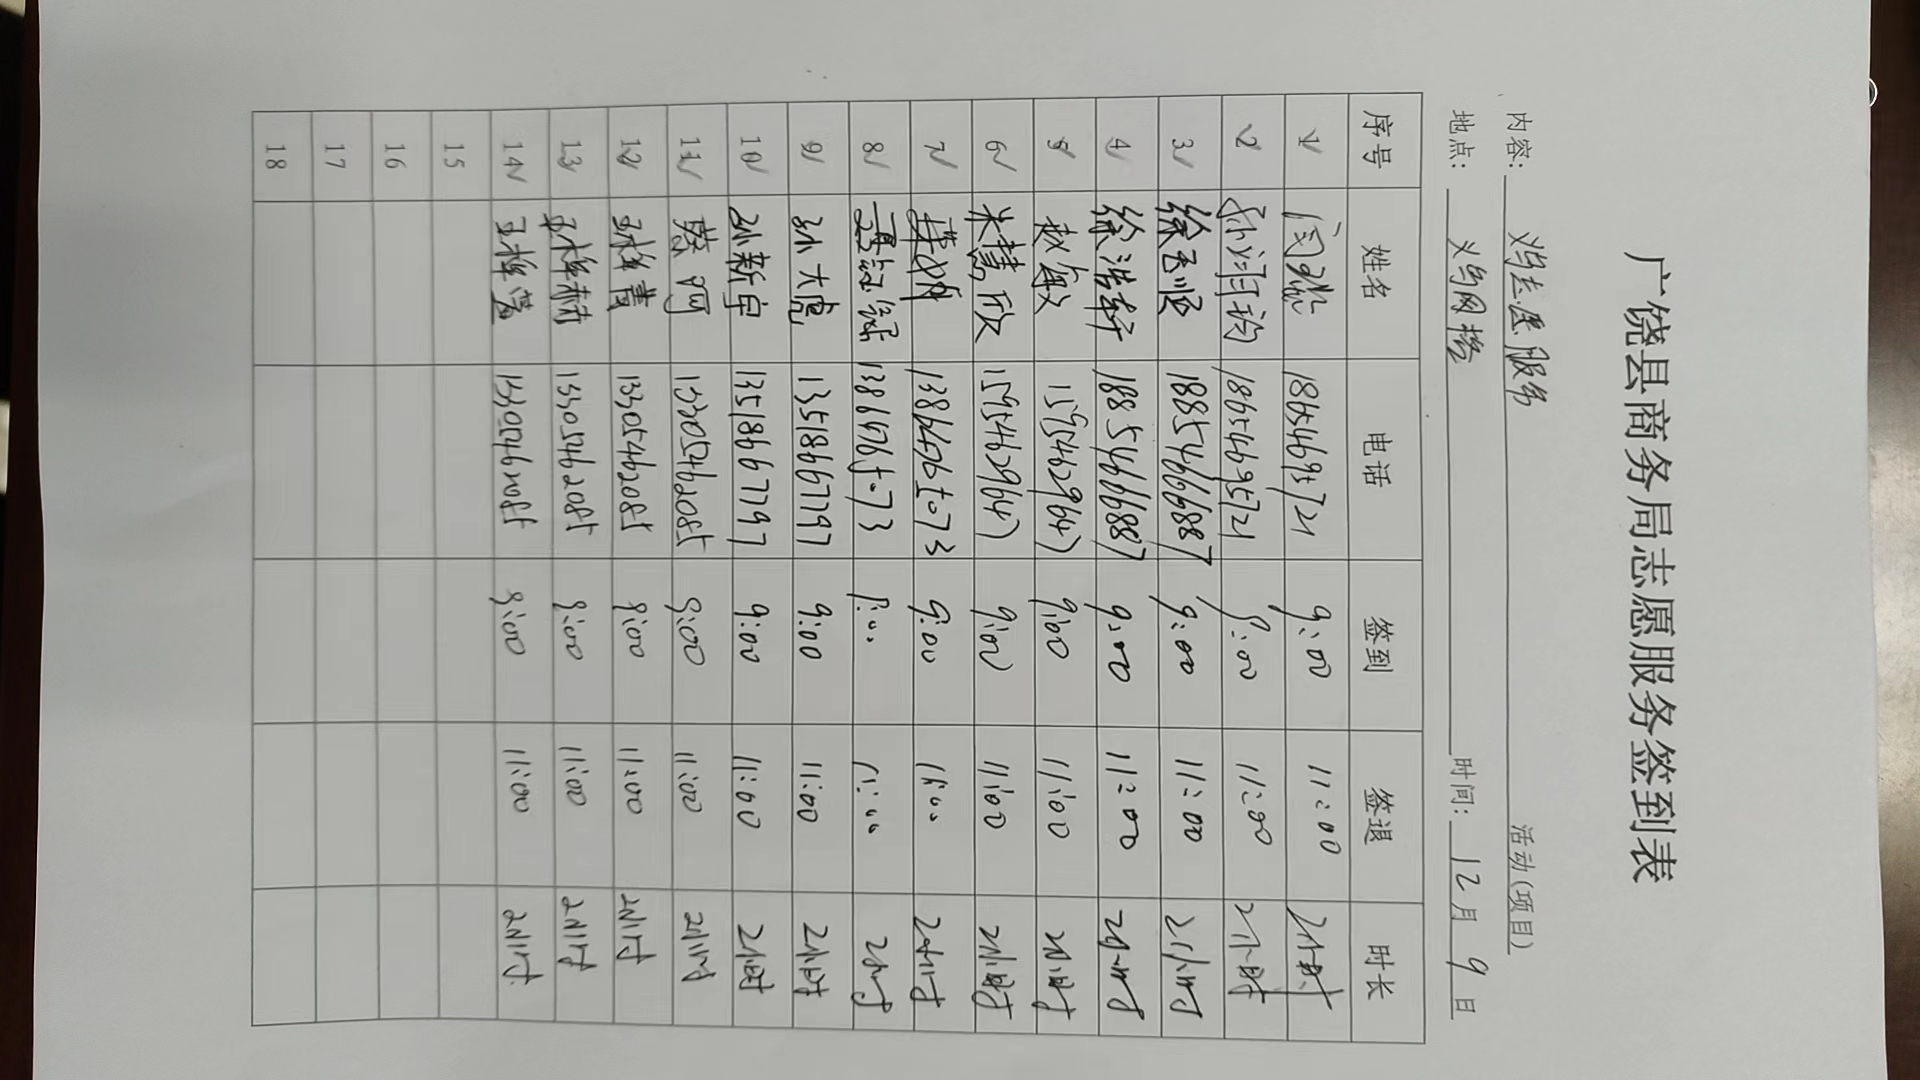 广饶县商务局志愿服务签到表
内容: 服务 活动(项目)
地点: 时间: 12月9日
序号 姓名 电话 签到 签退 时长
1 18654695721 9:00 11:00 2小时
2 18654695721 9:00 11:00 2小时
3 18854666887 9:00 11:00 2小时
4 徐浩轩 18854666887 9:00 11:00 2小时
5 赵敏 15954629647 9:00 11:00 2小时
6 米慧欣 15954629647 9:00 11:00 2小时
7 13864765073 9:00 11:00 2小时
8 9:00 11:00 2小时
9 孙大亮 13518667797 9:00 11:00 2小时
10 孙新宇 13518667797 9:00 11:00 2小时
11 13305462085 9:00 11:00 2小时
12 13305462085 9:00 11:00 2小时
13 13305462085 9:00 11:00 2小时
14 13305462085 9:00 11:00 2小时
15
16
17
18